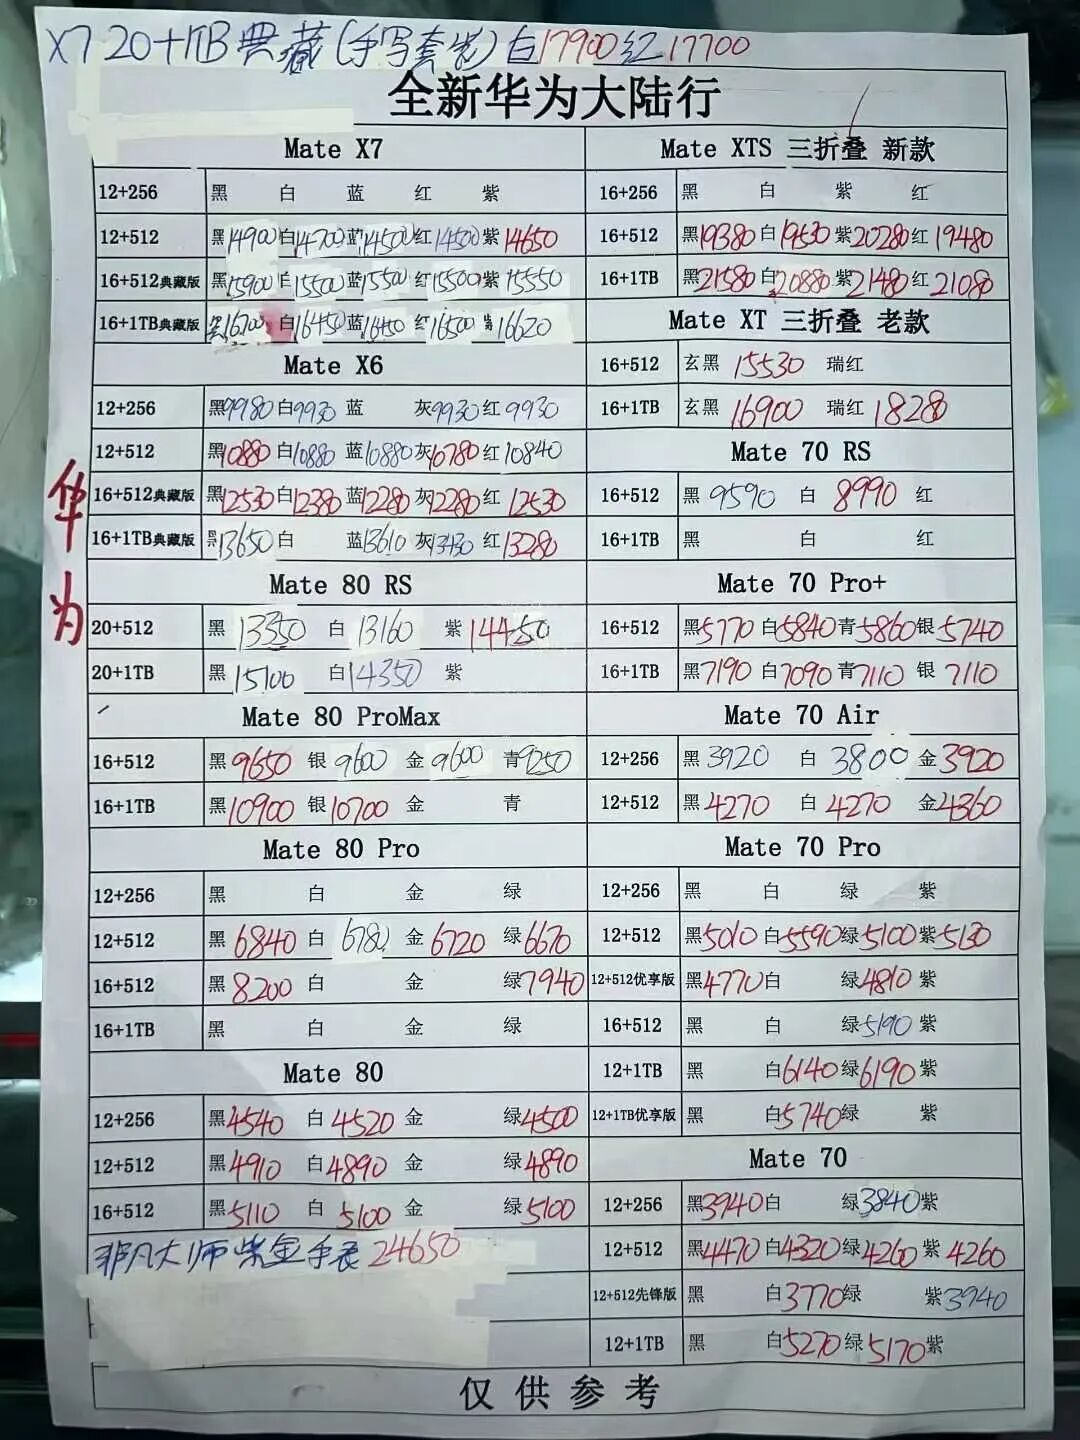 X7 20+1TB典藏(手写套装)白17900红17700
全新华为大陆行
华为
Mate X7
12+256 黑 白 蓝 红 紫
12+512 黑14900白14700蓝14500红14500紫14650
16+512典藏版 黑15900白15500蓝15500红15500紫15550
16+1TB典藏版 16700 白16450蓝16450红16500 16620
Mate X6
12+256 黑9980白9930蓝 灰9930红9930
12+512 黑10880白10880蓝10880灰10780红10840
16+512典藏版 黑12530白12380蓝12280灰12280红12530
16+1TB典藏版 黑13650白 蓝13610灰13430红13280
Mate 80 RS
20+512 黑13350 白13160 紫14450
20+1TB 黑15100 白14350 紫
Mate 80 ProMax
16+512 黑9650 银9600 金9600 青9250
16+1TB 黑10900 银10700 金 青
Mate 80 Pro
12+256 黑 白 金 绿
12+512 黑6840 白6780 金6720 绿6670
16+512 黑8200 白 金 绿7940
16+1TB 黑 白 金 绿
Mate 80
12+256 黑4540 白4520 金 绿4500
12+512 黑4910 白4890 金 绿4890
16+512 黑5110 白5100 金 绿5100
非凡大师紫金手表24650
Mate XTS 三折叠 新款
16+256 黑 白 紫 红
16+512 黑19380白19530紫20280红19480
16+1TB 黑21580白20880紫21480红21080
Mate XT 三折叠 老款
16+512 玄黑 15530 瑞红
16+1TB 玄黑 16900 瑞红 18280
Mate 70 RS
16+512 黑 9590 白 8990 红
16+1TB 黑 白 红
Mate 70 Pro+
16+512 黑5770白5840青5860银5740
16+1TB 黑7190白7090青7110银7110
Mate 70 Air
12+256 黑3920 白3800 金3920
12+512 黑4270 白4270 金4360
Mate 70 Pro
12+256 黑 白 绿 紫
12+512 黑5010白5590绿5100紫5130
12+512优享版 黑4770白 绿4810紫
16+512 黑 白 绿5190紫
12+1TB 黑 白6140绿6190紫
12+1TB优享版 黑 白5740绿 紫
Mate 70
12+256 黑3940白 绿3840紫
12+512 黑4470白4320绿4260紫4260
12+512先锋版 黑 白3770绿 紫3940
12+1TB 黑 白5270绿5170紫
仅供参考